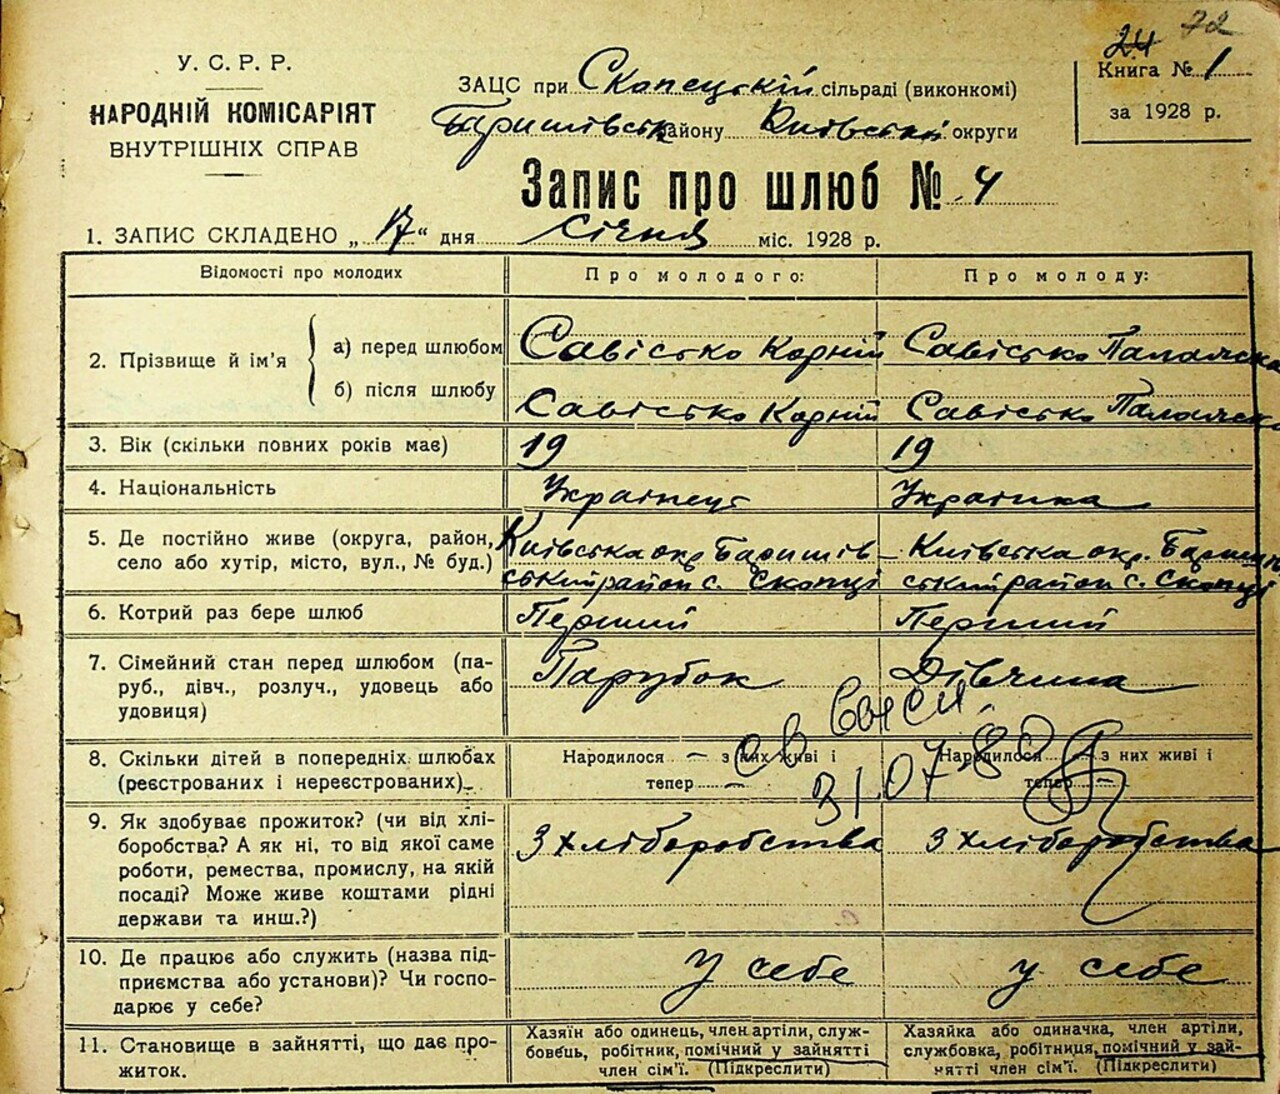 24 72
У. С. Р. Р.
НАРОДНІЙ КОМІСАРІЯТ
ВНУТРІШНІХ СПРАВ
ЗАЦС при Скопецькій сільраді (виконкомі)
Баришівськ району Київської округи
Книга № 1
за 1928 р.
Запис про шлюб № 4
1. ЗАПИС СКЛАДЕНО „ 17 “ дня січня міс. 1928 р.
Відомості про молодих
Про молодого:
Про молоду:
2. Прізвище й ім'я
а) перед шлюбом
Савісько Корній
Савісько Палажка
б) після шлюбу
Савісько Корній
Савісько Палажка
3. Вік (скільки повних років має)
19
19
4. Національність
Українець
Українка
5. Де постійно живе (округа, район,
село або хутір, місто, вул., № буд.)
Київська окр. Баришів-
ський район с. Скопці
Київська окр. Баришів
ський район с. Скопці
6. Котрий раз бере шлюб
Перший
Перший
7. Сімейний стан перед шлюбом (па-
руб., дівч., розлуч., удовець або
удовиця)
Парубок
Дівчина
8. Скільки дітей в попередніх шлюбах
(реєстрованих і нереєстрованих)
Народилося — з них живі і
тепер —
Народилося з них живі і
тепер —
31.07.80
9. Як здобуває прожиток? (чи від хлі-
боробства? А як ні, то від якої саме
роботи, ремества, промислу, на якій
посаді? Може живе коштами рідні
держави та инш.?)
З хліборобства
З хліборобства
10. Де працює або служить (назва під-
приємства або установи)? Чи госпо-
дарює у себе?
У себе
У себе
11. Становище в зайнятті, що дає про-
житок.
Хазяїн або одинець, член артіли, служ-
бовець, робітник, помічний у зайнятті
член сім'ї. (Підкреслити)
Хазяйка або одиначка, член артіли,
службовка, робітниця, помічний у зай-
нятті член сім'ї. (Підкреслити)